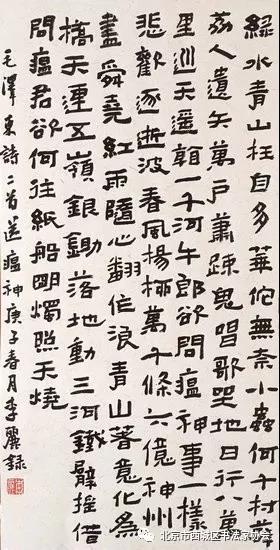 綠水青山枉自多華佗無奈小蟲何千村薜
荔人遺矢萬戶蕭疎鬼唱歌坐地日行八萬
里巡天遥看一千河牛郎欲問瘟神事一樣
悲歡逐逝波春風楊柳萬千條六億神州
盡舜堯紅雨隨心翻作浪青山著意化為
橋天連五嶺銀鋤落地動三河鐵臂搖借
問瘟君欲何往紙船明燭照天燒
毛澤東詩二首送瘟神庚子春月李麗錄
北京市西城区书法家协会